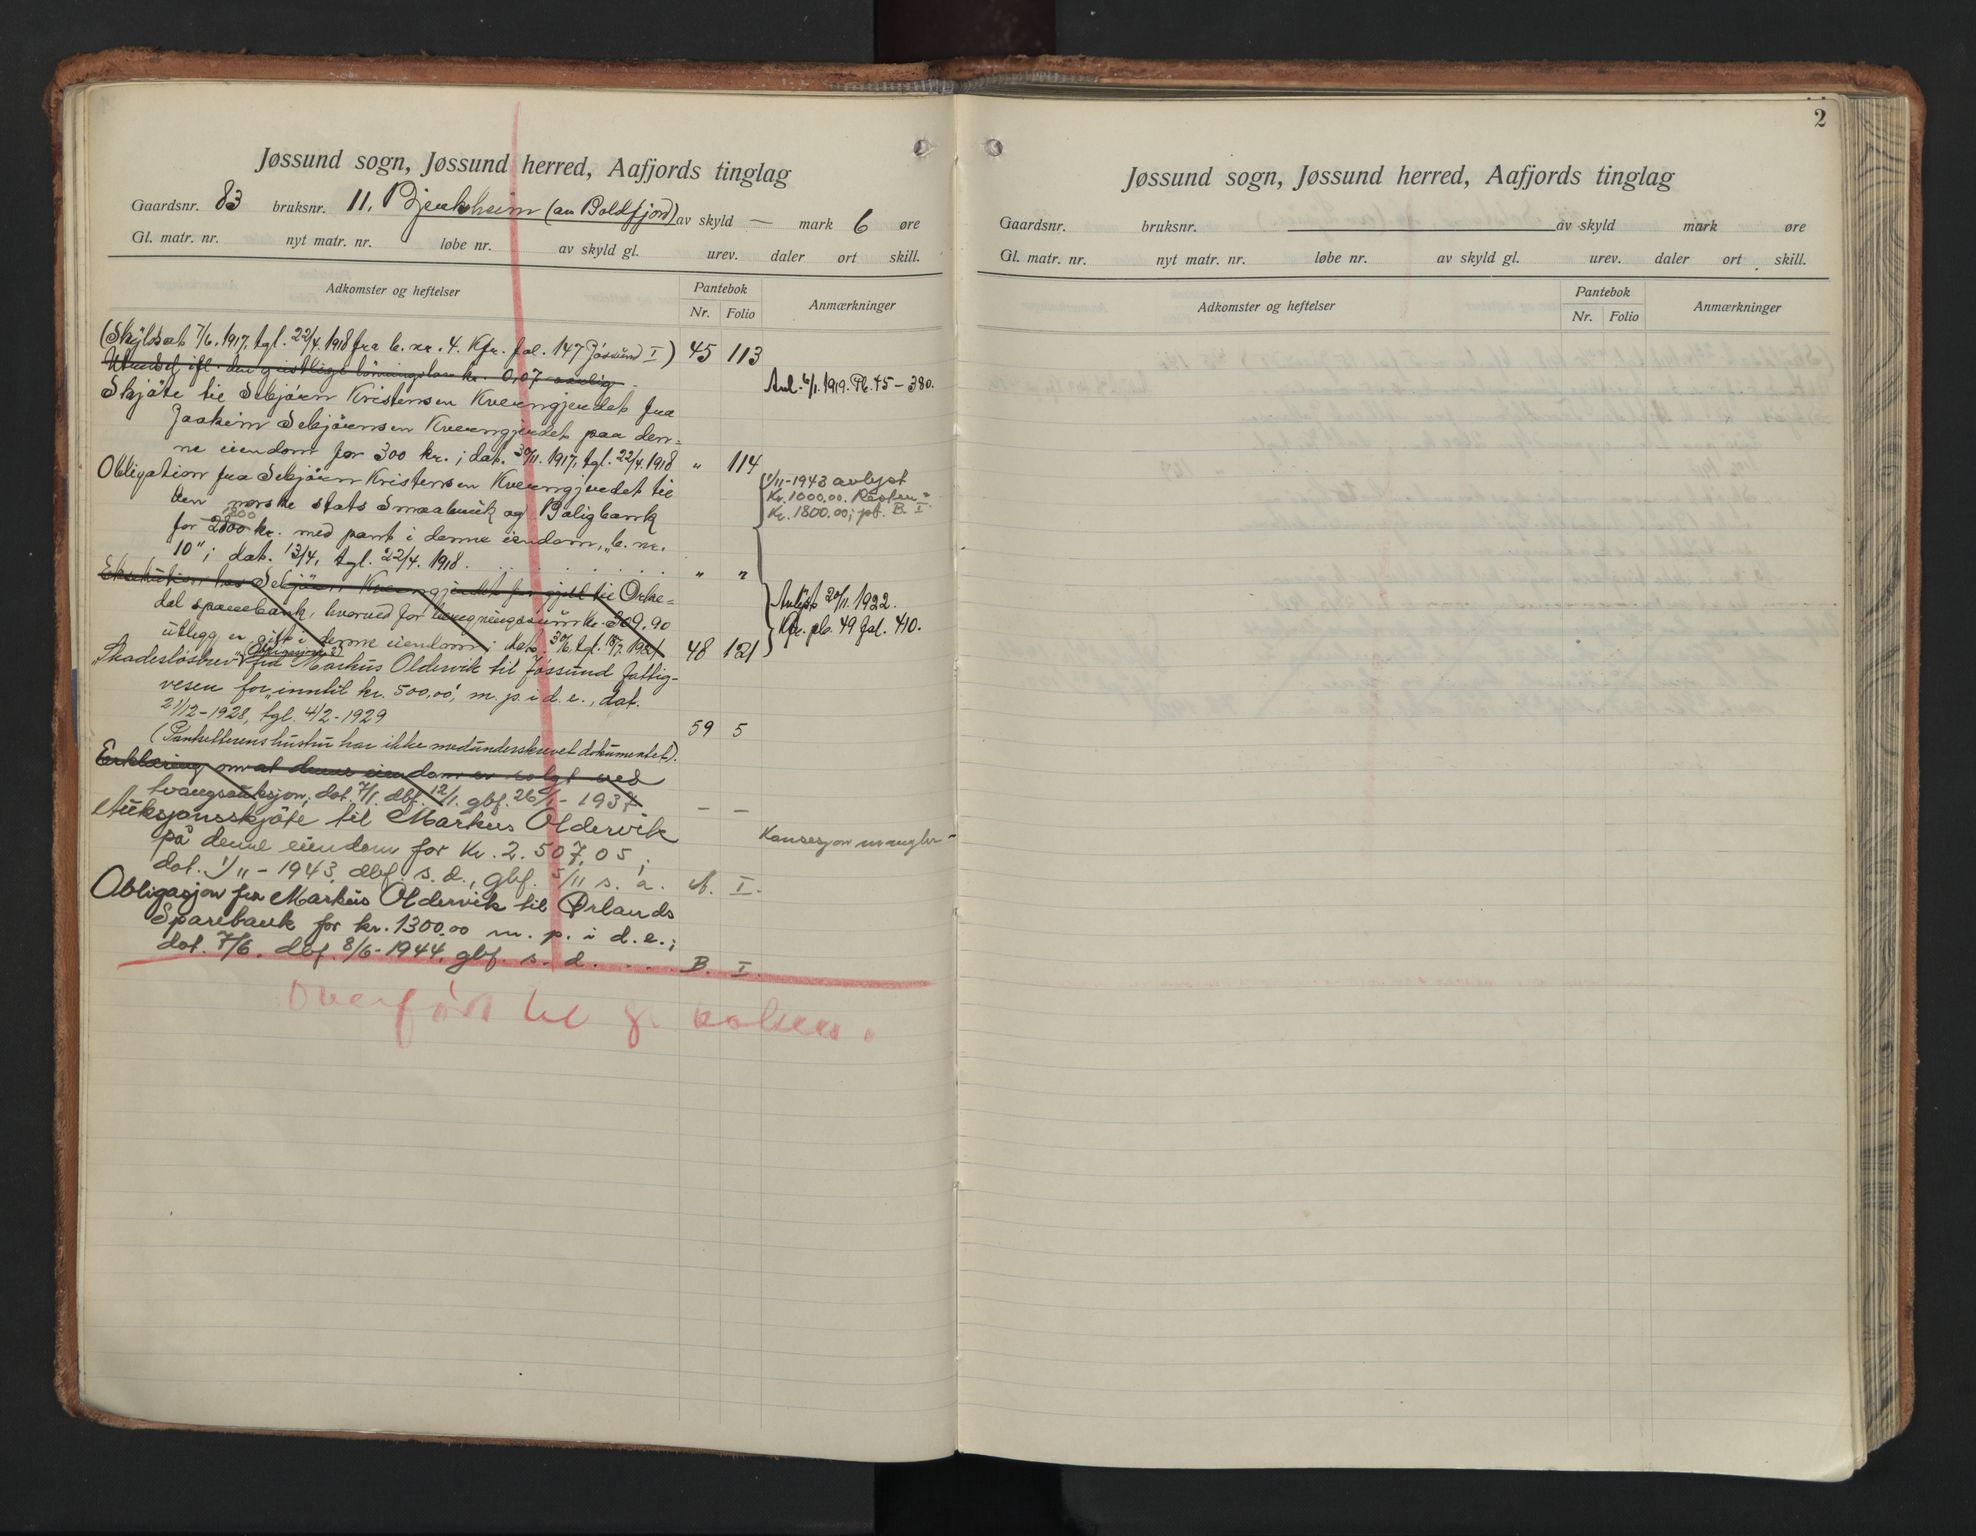 Jøssund sogn, Jøssund herred, Aafjords tinglag
Gaardsnr. 83 bruksnr. 11. Bjerkheim (av Boldfjord) av skyld — mark 6 øre
Gl. matr. nr. nyt matr. nr. løbe nr. av skyld gl. urev. daler ort skill.
Adkomster og heftelser Pantebok Anmærkninger
Nr. Folio
(Skyldsat 7/6. 1917, tgl. 22/4. 1918 fra b. nr. 4. Kfr. fol. 147 Jøssund I) 45 113
Utendsel ifl. den geistlige lønningslov kr. 0,07 aarlig. Avl. 6/1. 1919. Pb. 45 – 380.
Skjøte til Sebjørn Kristensen Kverngjerdet fra
Joakim Sebjørnsen Kverngjerdet paa den=
ne eiendom for 300 kr.; dat. 30/11. 1917, tgl. 22/4. 1918 „ 114
Obligation fra Sebjørn Kristensen Kverngjerdet til 1/11-1943 avlyst
den norske stats Smaabruk og Boligbank Kr. 1000.00. Resten =
1800 Kr. 1800.00; pb. B. I.
for 2800 kr. med pant i denne eiendom, „b. nr.
10"; dat. 13/4, tgl. 22/4. 1918. „ „
Eksekution hos Sebjørn Kverngjerdet for gjeld til Orke=
dal sparebank, hvorved for beregningssum kr. 309,90 Avlyst 20/11. 1922.
utlegg er gitt i denne eiendom; dat. 30/6, tgl. 18/7. 1921 48 121 Kfr. pb. 49 fol. 410.
„Skadesløsbrev" (Obligasjon?) fra Markus Oldervik til Jøssund fattig-
vesen for „inntil kr. 500,00", m. p. i d. e., dat.
21/12-1928, tgl. 4/2-1929 59 5
(Pantsetterens hustru har ikke medunderskrevet dokumentet).
Erklæring om at denne eiendom er solgt ved
tvangsauksjon, dat. 7/1. dbf. 12/1. gbf. 26/1 - 1937 — —
Auksjonsskjøte til Markus Oldervik
på denne eiendom for Kr. 2.507,05; Konsesjon mangler
dat. 1/11 - 1943, dbf. s. d., gbf. 5/11 s. å. A. I.
Obligasjon fra Markus Oldervik til Ørlands
Sparebank for kr. 1300.00 m. p. i d. e.;
dat. 7/6. dbf. 8/6-1944, gbf. s. d. B. I.
Overført til
2
Jøssund sogn, Jøssund herred, Aafjords tinglag
Gaardsnr. bruksnr. av skyld mark øre
Gl. matr. nr. nyt matr. nr. løbe nr. av skyld gl. urev. daler ort skill.
Adkomster og heftelser Pantebok Anmærkninger
Nr. Folio